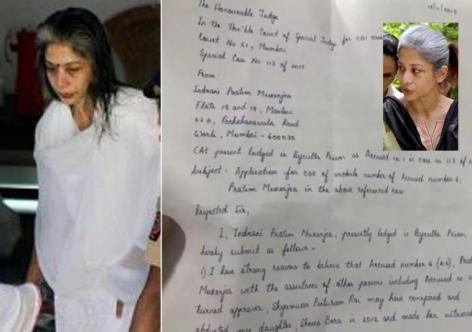 The Honourable Judge
In the Hon'ble Court of Special Judge for CBI
Court No 51, Mumbai
Special Case No. 112 of 2015
From:
Indrani Pratim Mukerjea
Flats 18 and 19, Marlow
62 B, Pochkhanawala Road
Worli, Mumbai - 400030
(At present lodged in Byculla Prison as Accused no 1 in case no 112 of
Subject: Application for CDR of mobile number of Accused number 4,
Pratim Mukerjea in the above referenced case
Respected Sir,
I, Indrani Pratim Mukerjea, presently lodged in Byculla Prison
hereby submit as follows -
1) I have strong reasons to believe that Accused number 4 (A4),
Mukerjea with the assistance of other persons including Accused no
turned approver, Shyamvar Pinturam Rai may have conspired and
abducted my daughter, Sheena Bora in 2012 and made her